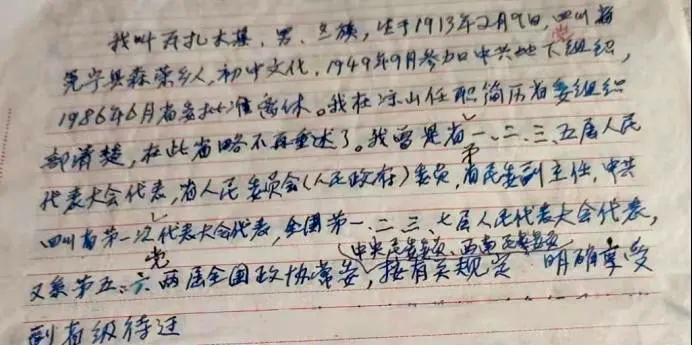 我叫瓦扎木基，男，彝族，生于1913年2月9日，四川省
冕宁县森荣乡人，初中文化，1949年9月参加中共地下党组织，
1986年6月省委批准离休。我在凉山任职简历省委组织
部清楚，在此省略不再重述了。我曾是省第一、二、三、五届人民
代表大会代表，省人民委员会（人民政府）委员，省民委副主任，中共
四川省第一次党代表大会代表，全国第一、二、三、七届人民代表大会代表，
（中央民委委员、西南民委委员）
又系第五、六两届全国政协常委，按有关规定 明确享受
副省级待迂